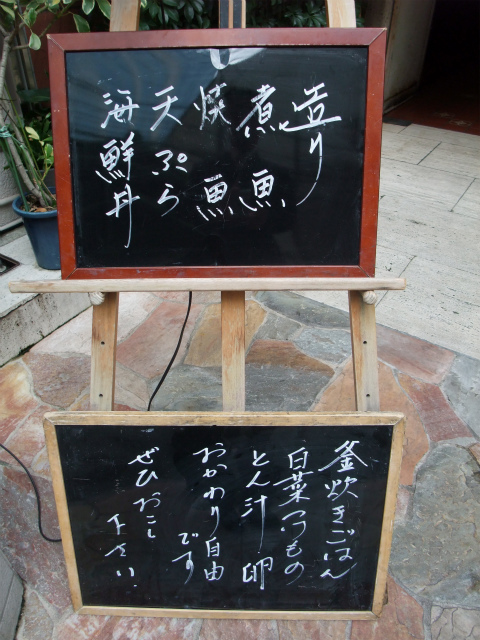 造り
煮魚
焼魚
天ぷら
海鮮丼
釜炊きごはん
白菜つけもの
とん汁 卵
おかわり自由です
ぜひおこし下さい